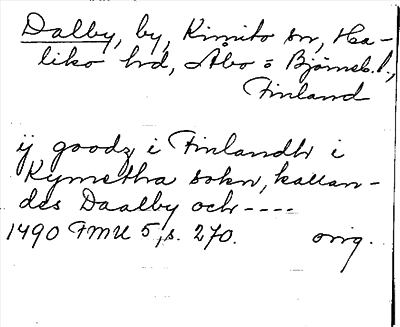 Dalby, by, Kimito sn, Ha-
liko hd, Åbo o Björneb. l.,
Finland
ij goodz i Finlandh i
Kymetha sokn, kallan-
des Daalby och ----
1490 FMU 5, s. 270. orig.